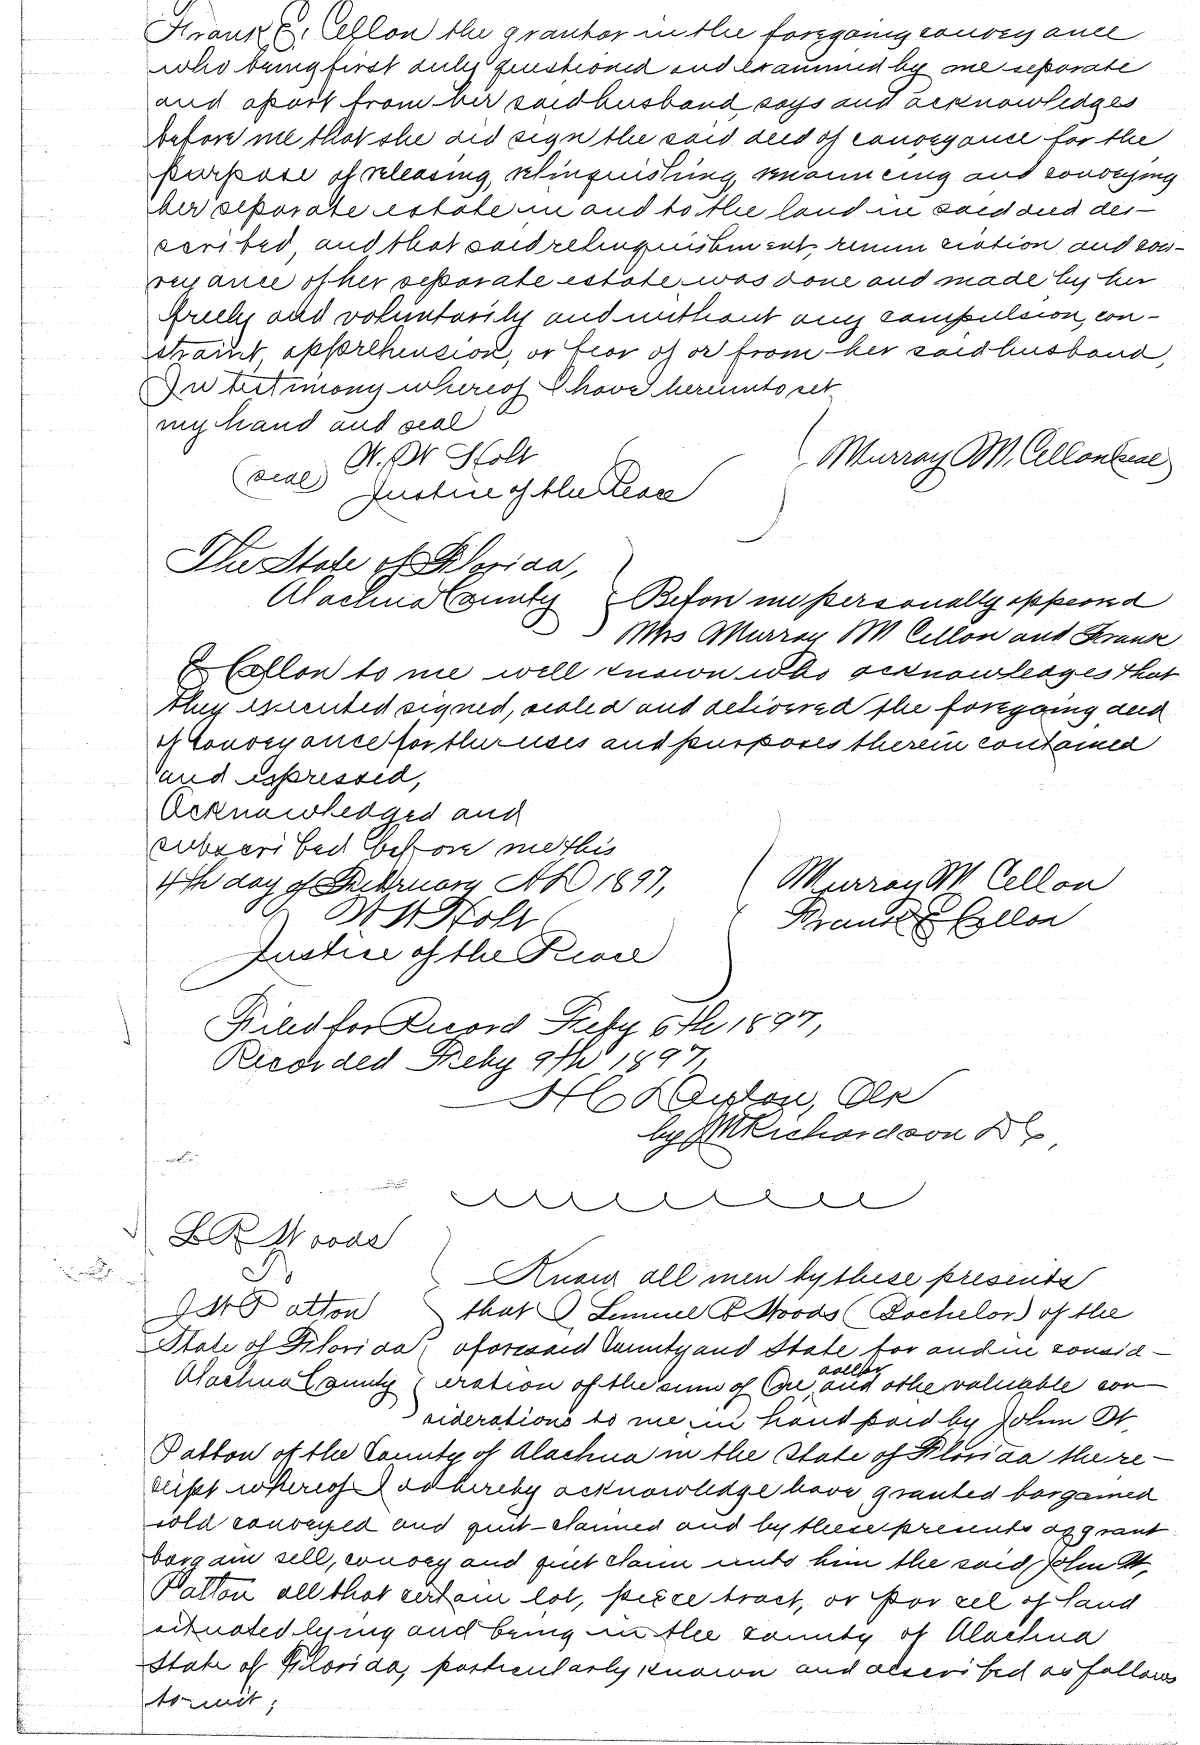 Frank E. Cellon the grantor in the foregoing conveyance
who being first duly questioned and examined by me separate
and apart from her said husband, says and acknowledges
before me that she did sign the said deed of conveyance for the
purpose of releasing, relinquishing, renouncing and conveying
her separate estate in and to the land in said deed des-
cribed, and that said relinquishment, renunciation and con-
veyance of her separate estate was done and made by her
freely and voluntarily and without any compulsion, con-
straint, apprehension, or fear of or from her said husband,
In testimony whereof I have hereunto set
my hand and seal
W. W Holt
Murray M. Cellon (seal)
(seal) Justice of the Peace
The State of Florida,
Alachua County } Before me personally appeared
Mrs Murray M Cellon and Frank
E Cellon to me well known who acknowledges that
they executed signed, sealed and delivered the foregoing deed
of conveyance for the uses and purposes therein contained
and expressed,
Acknowledged and
subscribed before me this
4th day of February AD 1897,
Murray M Cellon
W W Holt
Frank E Cellon
Justice of the Peace
Filed for Record Feby 6th 1897,
Recorded Feby 9th 1897,
H C Denton, Clk
by Richardson DC,
L R Woods
To
Know all men by these presents
J W Patton } that I Lemuel R Woods (Bachelor) of the
State of Florida } aforesaid County and State for and in consid-
Alachua County } eration of the sum of One dollar and othe valuable con-
siderations to me in hand paid by John W.
Patton of the County of Alachua in the State of Florida the re-
ceipt whereof I do hereby acknowledge have granted bargained
sold conveyed and quit-claimed and by these presents do grant
bargain sell, convey and quit claim unto him the said John W,
Patton all that certain lot, piece tract, or parcel of land
situated lying and being in the county of Alachua
State of Florida, particularly known and described as follows
to-wit;